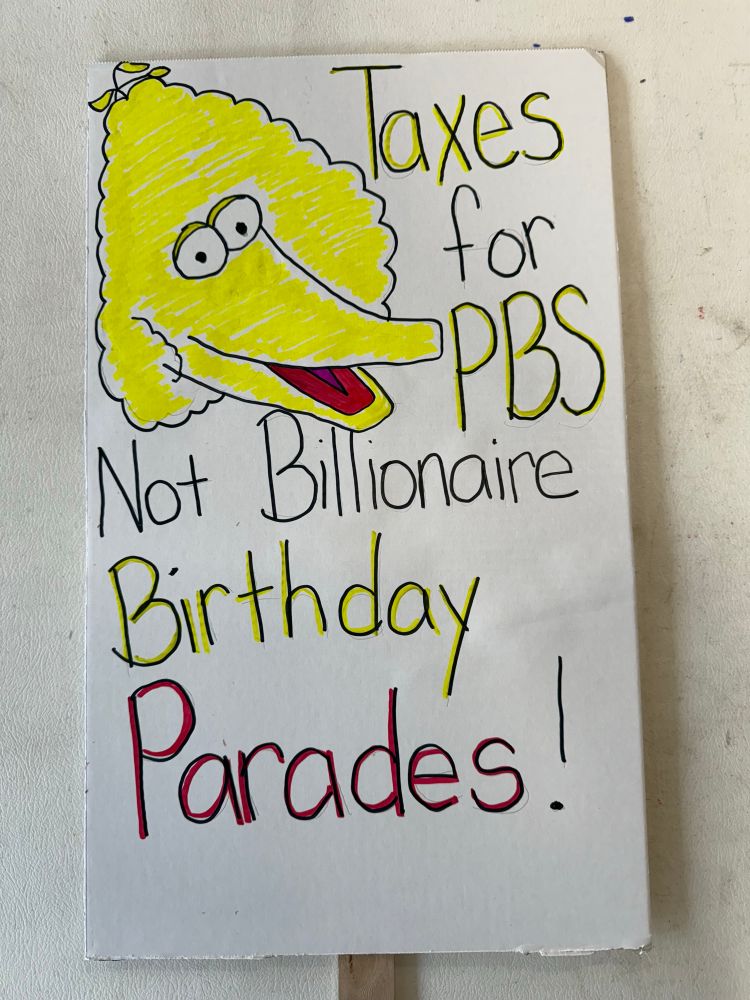 Taxes
for
PBS
Not Billionaire
Birthday
Parades!